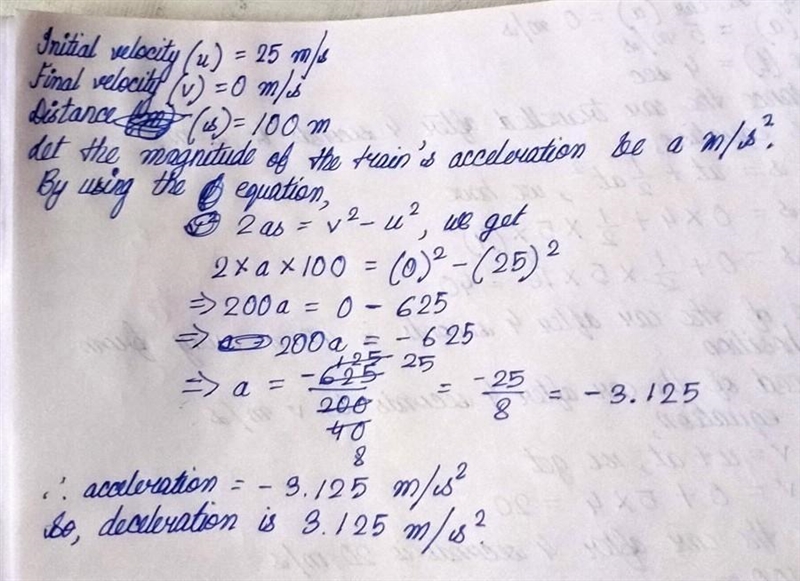 Initial velocity (u) = 25 m/s
Final velocity (v) = 0 m/s
Distance (s) = 100 m
Let the magnitude of the train's acceleration be a m/s².
By using the equation,
2as = v² - u², we get
2 × a × 100 = (0)² - (25)²
⇒ 200a = 0 - 625
⇒ 200a = - 625
⇒ a = -625/200 125 25 40 8 = -25/8 = - 3.125
∴ acceleration = - 3.125 m/s²
So, deceleration is 3.125 m/s².